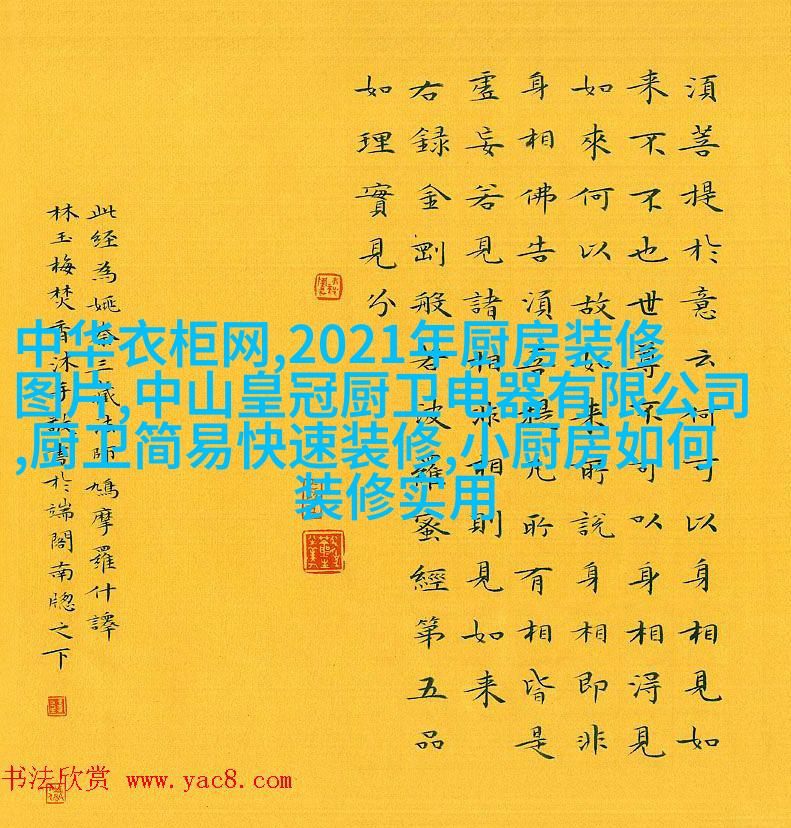 須菩提於意云何可以身相見如
来不不也世尊不可以身相得見
如來何以故如来所說身相即非
身相佛告須菩提凡所有相皆是
虛妄若見諸相非相則見如来
右録金剛般若波羅蜜經第五品
如理實見分
此経為姚秦三藏法師鳩摩羅什譯
林玉梅焚香沐手敬書於端閣南牕之下
中华衣柜网,2021年厨房装修
图片,中山皇冠厨卫电器有限公司
,厨卫简易快速装修,小厨房如何
装修实用
书法欣赏 www.yac8.com